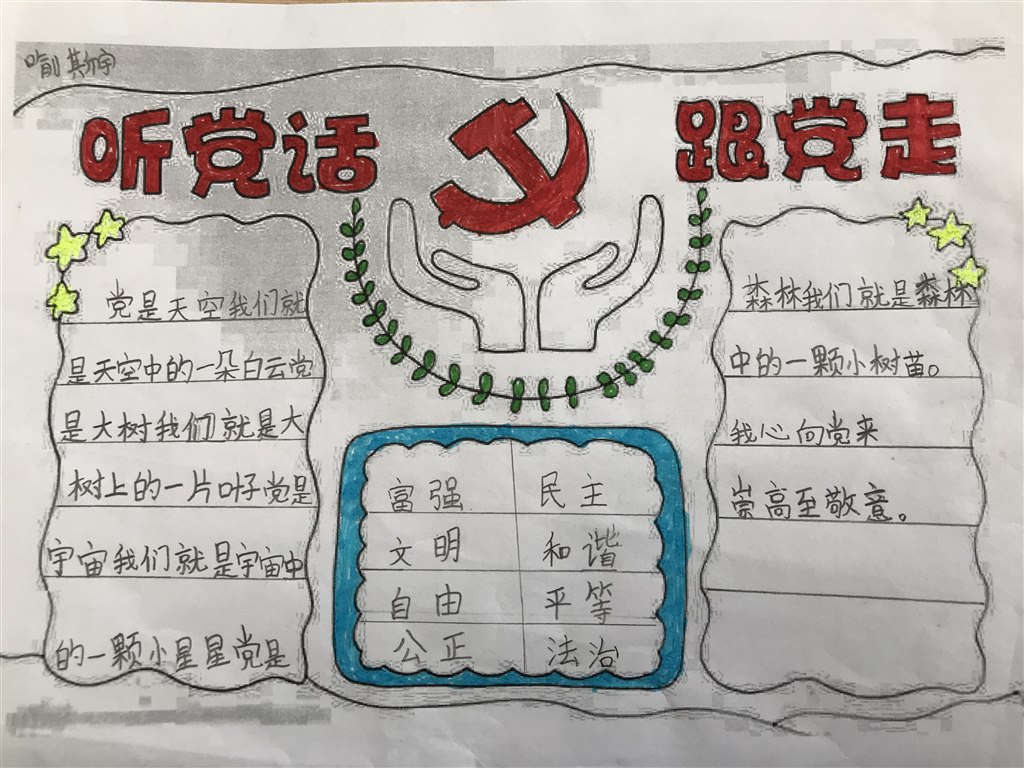 喻斯宇
听党话 跟党走
党是天空我们就
是天空中的一朵白云党
是大树我们就是大
树上的一片叶子党是
宇宙我们就是宇宙中
的一颗小星星党是
富强 民主
文明 和谐
自由 平等
公正 法治
森林我们就是森林
中的一颗小树苗。
我心向党来
崇高至敬意。